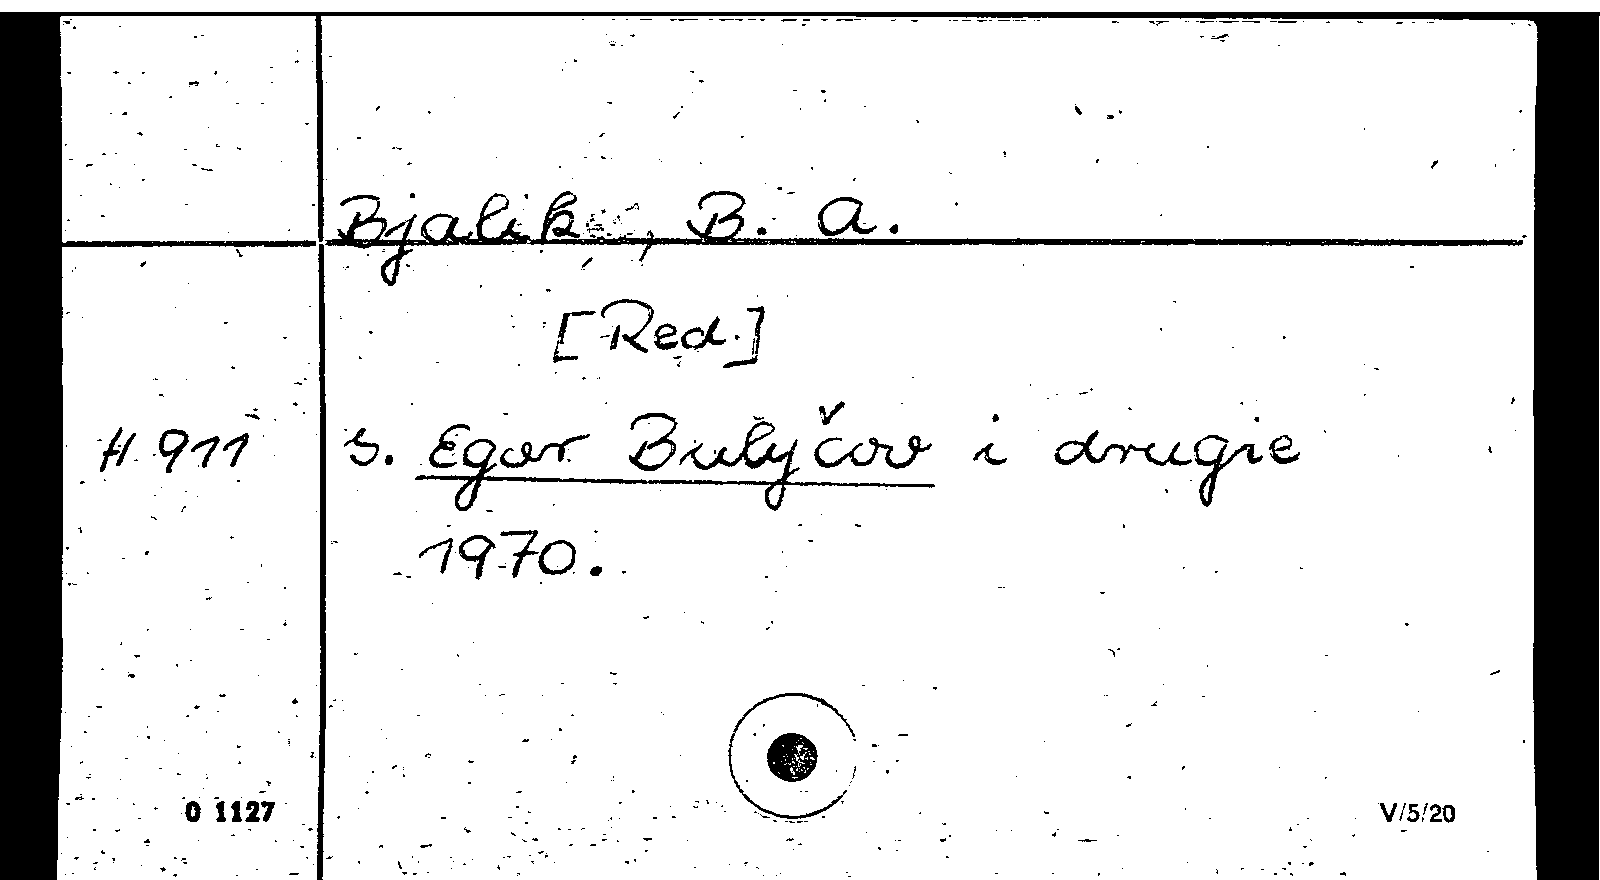 Bjalik, B. A.
[Red.]
H 911 s. Egor Bulyčov i drugie
1970.
0 1127
V/5/20